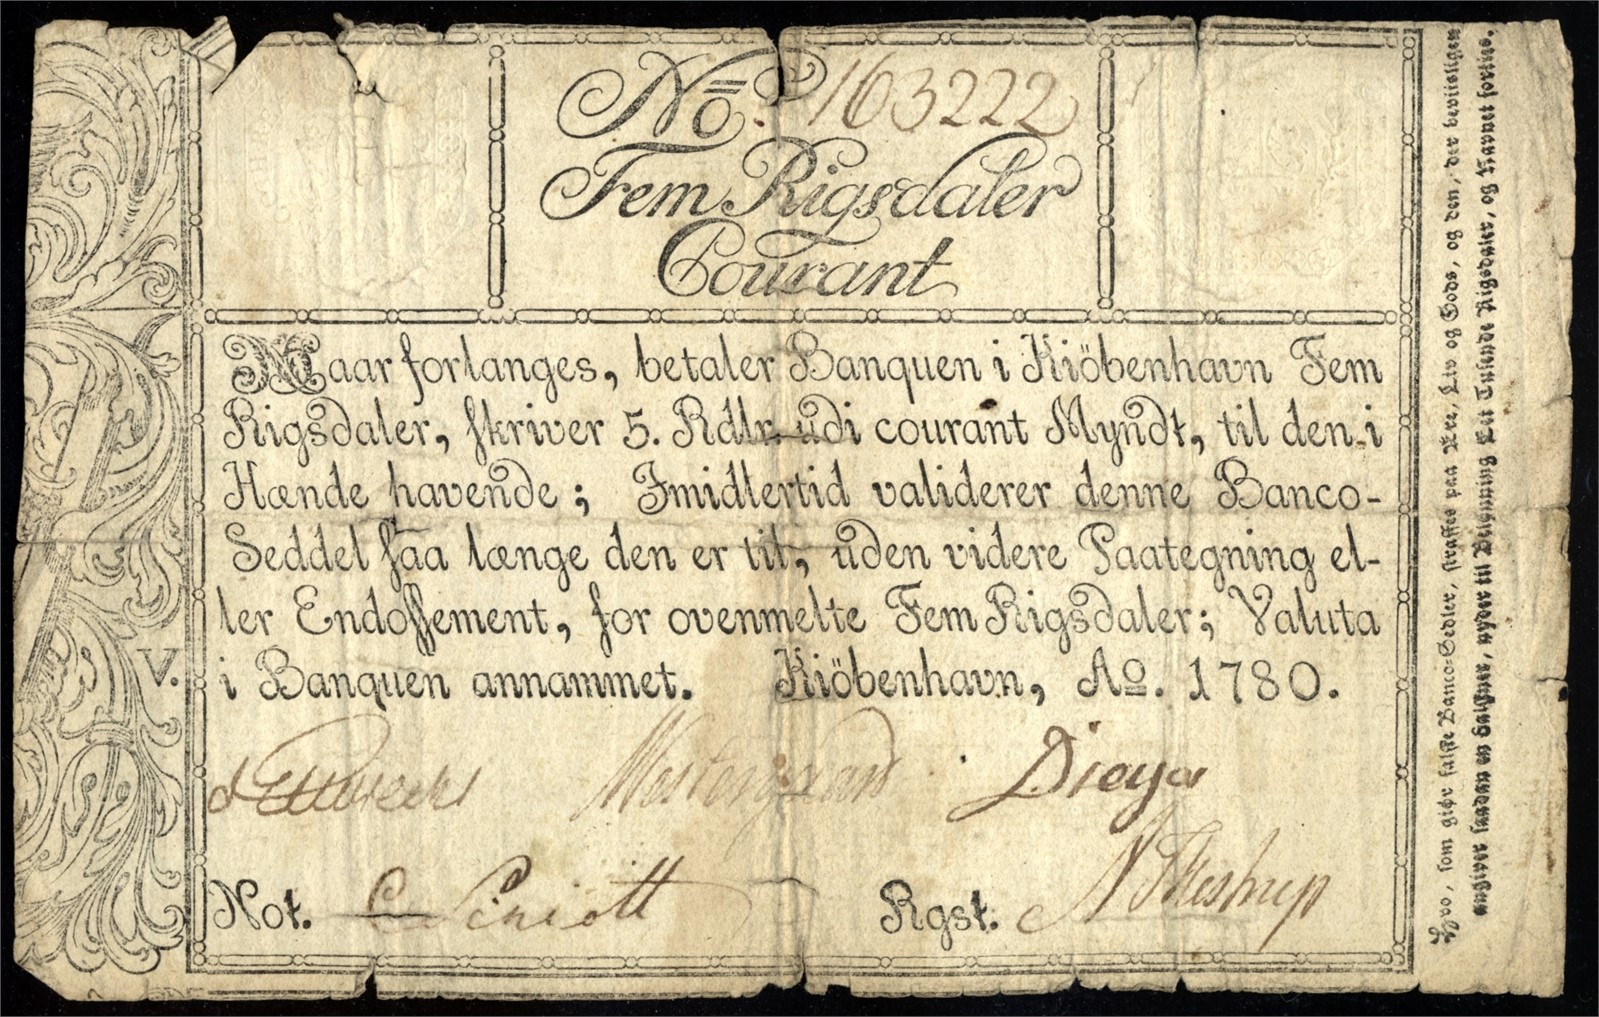 No. 163222
Fem Rigsdaler
Courant
Naar forlanges, betaler Banquen i Kiöbenhavn Fem
Rigsdaler, skriver 5. Rdlr. udi courant Myndt, til den i
Hænde havende; Imidlertid validerer denne Banco-
Seddel saa længe den er til, uden videre Paategning el-
ler Endossement, for ovenmelte Fem Rigsdaler; Valuta
i Banquen annammet. Kiöbenhavn, Ao. 1780.
V.
Westergaard
Not. C Schiøtt
Rgst.
Hvo, som giør falske Banco-Sedler, straffes paa Ære, Liv og Gods, og den, der beviisligen
angiver saadan en Falskner, nyder til Belønning Eet Tusinde Rigsdaler, og Navnet forties.